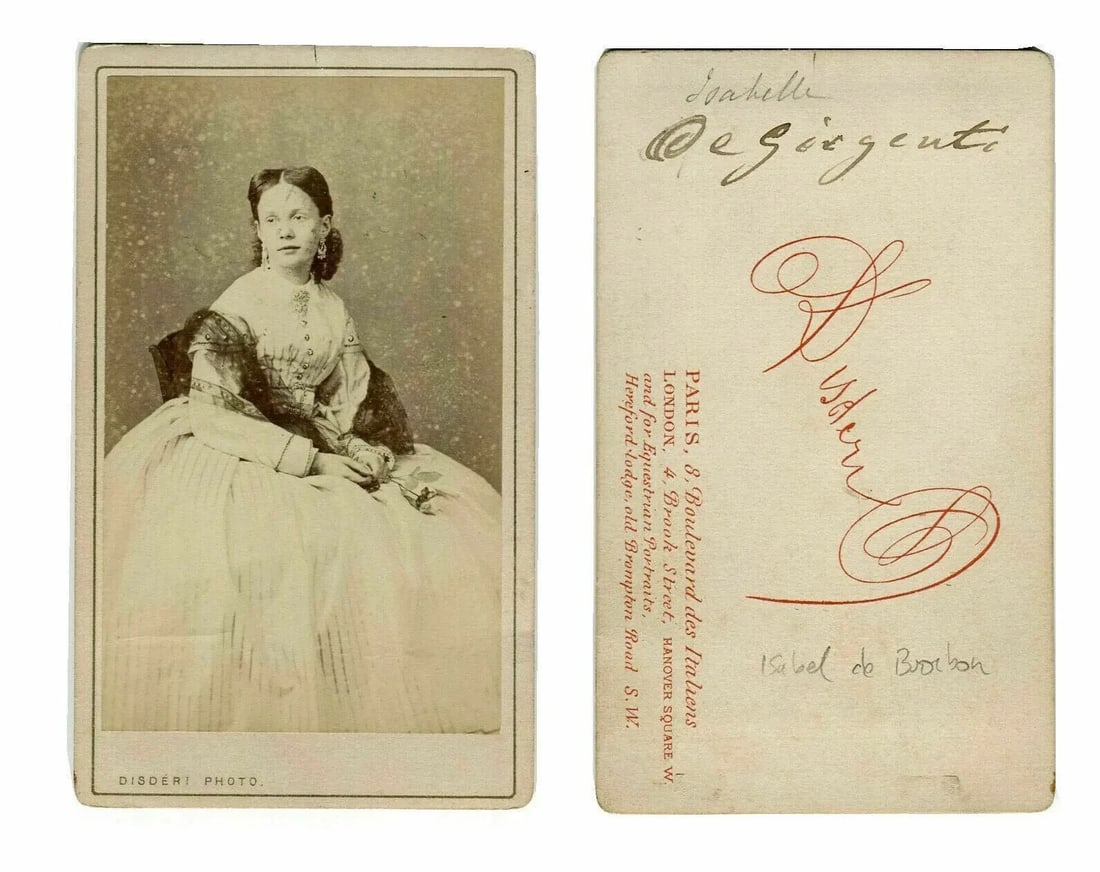 DISDÉRI PHOTO.
Isabelle
De Girgenti
Disderi
PARIS, 8, Boulevard des Italiens
LONDON, 4, Brook Street, HANOVER SQUARE W.
and for Equestrian Portraits,
Hereford-lodge, old Brompton Road S.W.
Isabel de Bourbon